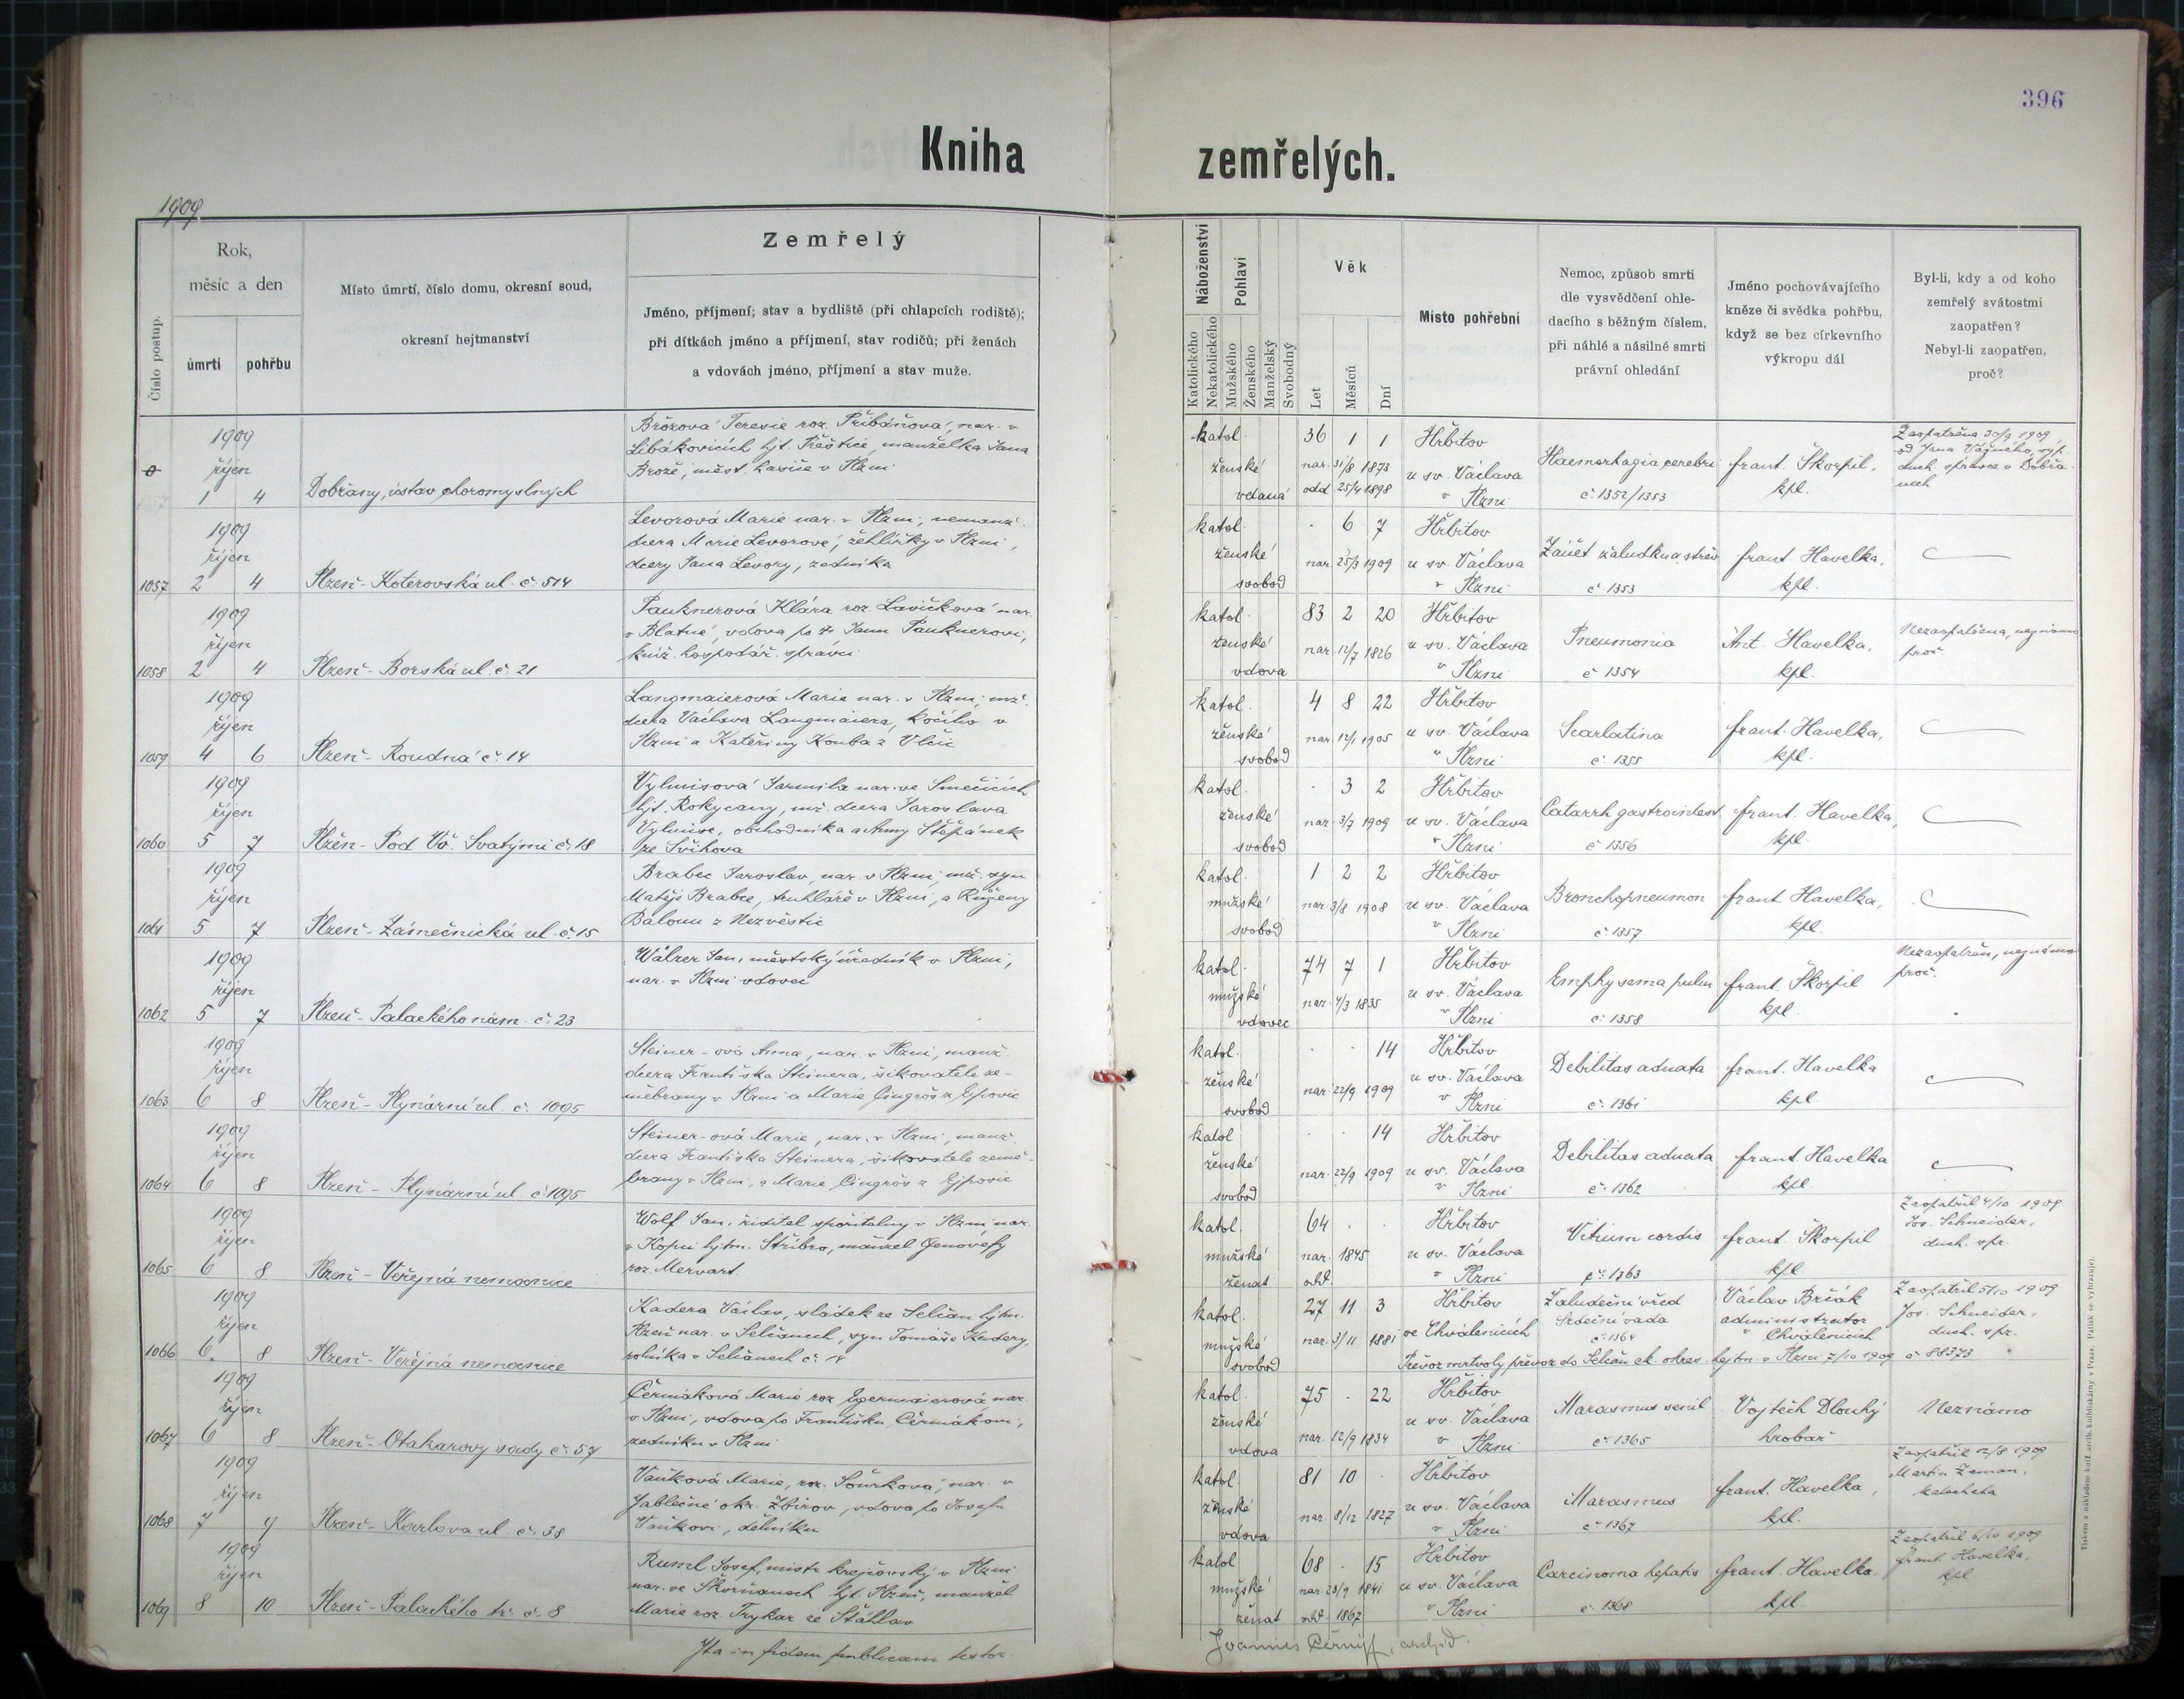 396
Kniha zemřelých.
1909
Číslo postup.
Rok,
měsíc a den
úmrtí
pohřbu
Místo úmrtí, číslo domu, okresní soud,
okresní hejtmanství
Zemřelý
Jméno, příjmení; stav a bydliště (při chlapcích rodiště);
při dítkách jméno a příjmení, stav rodičů; při ženách
a vdovách jméno, příjmení a stav muže.
Náboženství
Katolického
Nekatolického
Pohlaví
Mužského
Ženského
Manželský
Svobodný
Věk
Let
Měsíců
Dní
Místo pohřební
Nemoc, způsob smrti
dle vysvědčení ohle-
dacího s běžným číslem,
při náhlé a násilné smrti
právní ohledání
Jméno pochovávajícího
kněze či svědka pohřbu,
když se bez církevního
výkropu dál
Byl-li, kdy a od koho
zemřelý svátostmi
zaopatřen?
Nebyl-li zaopatřen,
proč?
0
1909
říjen
1 4
Dobřany, ústav choromyslných
Brožová Terezie roz. Přibáňová, nar. v
Libákovicích hjt. Přeštice, manželka Jana
Brože, měst. hasiče v Plzni
katol.
ženské
vdaná
36 1 1
nar. 31/8 1873
odd. 25/4 1898
Hřbitov
u sv. Václava
v Plzni
Haemorhagia cerebri
č. 1352/1353
frant. Škorpil,
kpl.
Zaopatřena 30/9 1909
od Jana
duch. správce v Dobřa-
nech
1057
1909
říjen
2 4
Plzeň - Koterovská ul. č. 514
Levorová Marie nar. v Plzni, nemanž.
dcera Marie Levorové, žehlířky v Plzni,
dcery Jana Levory, zedníka
katol.
ženské
svobod
. 6 7
nar. 25/3 1909
Hřbitov
u sv. Václava
v Plzni
Zánět žaludku a střev
č. 1353
frant. Havelka,
kpl.
1058
1909
říjen
2 4
Plzeň - Borská ul. č. 21
Pauknerová Klára roz. Lavičková nar.
v Blatné, vdova po † Janu Pauknerovi,
kníž. hospodář. správci
katol.
ženské
vdova
83 2 20
nar. 12/7 1826
Hřbitov
u sv. Václava
v Plzni
Pneumonia
č. 1354
Ant. Havelka,
kpl.
Nezaopatřena, neznámo
proč.
1059
1909
říjen
4 6
Plzeň - Roudná č. 14
Langmaierová Marie nar. v Plzni, mž.
dcera Václava Langmaiera, kočího v
Plzni a Kateřiny Kouba z Vlčic
katol.
ženské
svobod
4 8 22
nar. 12/1 1905
Hřbitov
u sv. Václava
v Plzni
Scarlatina
č. 1355
frant. Havelka,
kpl.
1060
1909
říjen
5 7
Plzeň - Pod Vš. Svatými č. 18
Vylmisová Jarmila nar. ve Smečicích
hjt. Rokycany, mž. dcera Jaroslava
Vylmise, obchodníka a Anny Štěpánek
ze Švihova
katol.
ženské
svobod
. 3 2
nar. 3/7 1909
Hřbitov
u sv. Václava
v Plzni
Catarrh gastrointest.
č. 1356
frant. Havelka,
kpl.
1061
1909
říjen
5 7
Plzeň - Zámečnická ul. č. 15
Brabec Jaroslav, nar. v Plzni, mž. syn
Matěje Brabce, truhláře v Plzni, a Růženy
Baloun z Nezvěstic
katol.
mužské
svobod
1 2 2
nar. 3/8 1908
Hřbitov
u sv. Václava
v Plzni
Bronchopneumon
č. 1357
frant. Havelka,
kpl.
1062
1909
říjen
5 7
Plzeň - Palackého nám. č. 23
Wälzer Jan, městský úředník v Plzni,
nar. v Plzni vdovec
katol.
mužské
vdovec
74 7 1
nar. 4/3 1835
Hřbitov
u sv. Václava
v Plzni
Emphysema pulm
č. 1358
frant. Škorpil
kpl.
Nezaopatřen, neznámo
proč.
1063
1909
říjen
6 8
Plzeň - Plynární ul. č. 1095
Steiner-ová Anna, nar. v Plzni, manž.
dcera Františka Steinera, šikovatele ze-
měbrany v Plzni a Marie Cingroš z Ejpovic
katol.
ženské
svobod
. . 14
nar. 22/9 1909
Hřbitov
u sv. Václava
v Plzni
Debilitas adnata
č. 1361
frant. Havelka
kpl.
1064
1909
říjen
6 8
Plzeň - Plynární ul. č. 1095
Steiner-ová Marie, nar. v Plzni, manž.
dcera Františka Steinera, šikovatele země-
brany v Plzni, a Marie Cingroš z Ejpovic
katol
ženské
svobod
. . 14
nar. 22/9 1909
Hřbitov
u sv. Václava
v Plzni
Debilitas adnata
č. 1362
frant Havelka
kpl.
1065
1909
říjen
6 8
Plzeň - Veřejná nemocnice
Wolf Jan, ředitel spořitelny v Plzni, nar.
v Kopci hjtm. Stříbro, manžel Genovéfy
roz. Mervart
katol.
mužské
ženat
64 . .
nar. 1845
odd.
Hřbitov
u sv. Václava
v Plzni
Vitium cordis
č. 1363
frant Škorpil
kpl
Zaopatřil 4/10 1909
Jos. Schneider,
duch. spr.
1066
1909
říjen
6. 8
Plzeň - Veřejná nemocnice
Kadera Václav, sládek ze Selčan hjtm.
Plzeň nar. v Selčanech, syn Tomáše Kadery,
rolníka v Selčanech č.
katol.
mužské
svobod
27 11 3
nar. 3/11 1881
Hřbitov
ve Chválenicích
Žaludeční vřed
Srdeční vada
č. 1364
Václav Brčák
administrator
v Chválenicích
Zaopatřil 5/10 1909
Jos. Schneider,
duch. spr.
Převoz mrtvoly převoz do Selčan ck. okres. hejtm. v Plzni 7/10 1909 č 88373
1067
1909
říjen
6 8
Plzeň - Otakarovy sady č. 57
Čermáková Marie roz. Egermaierová nar.
v Plzni, vdova po Františku Čermákovi,
zedníku v Plzni
katol.
ženské
vdova
75 . 22
nar. 12/9 1834
Hřbitov
u sv. Václava
v Plzni
Marasmus senil
č. 1365
Vojtěch Dlouhý
hrobař
Neznámo
1068
1909
říjen
7 9
Plzeň - Karlova ul. č. 38
Vaňková Marie, roz. Sourková, nar. v
Jablečné okr. Zbirov, vdova po Josefu
Vaňkovi, dělníku
katol.
ženské
vdova
81 10 .
nar. 8/12 1827
Hřbitov
u sv. Václava
v Plzni
Marasmus
č. 1367
frant. Havelka,
kpl.
Zaopatřil 12/8 1909
Martin Zeman,
katecheta
1069
1909
říjen
8 10
Plzeň - Palackého tř. č. 8
Ruml Josef, mistr krejčovský v Plzni
nar. ve Škvrňanech hjt. Plzeň, manžel
Marie roz. Trykar ze Šťáhlav
katol
mužské
ženat
68 . 15
nar. 23/9 1841
odd. 1867
Hřbitov
u sv. Václava
v Plzni
Carcinoma hepatis
č. 1368
frant. Havelka.
kpl.
Zaopatřil 6/10 1909
frant. Havelka,
kpl
Ita in fidem publicam testor
Joannes Černý, archid.